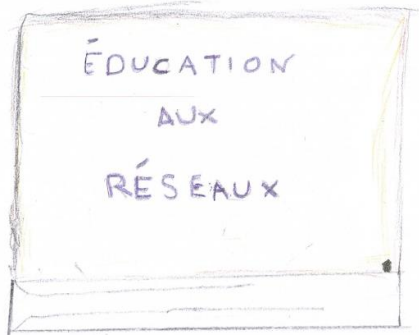 ÉDUCATION
AUX
RÉSEAUX